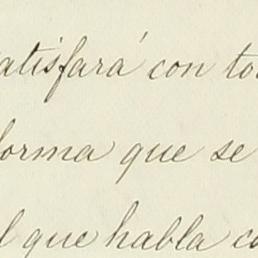 atisfará con to
forma que se
l que habla co